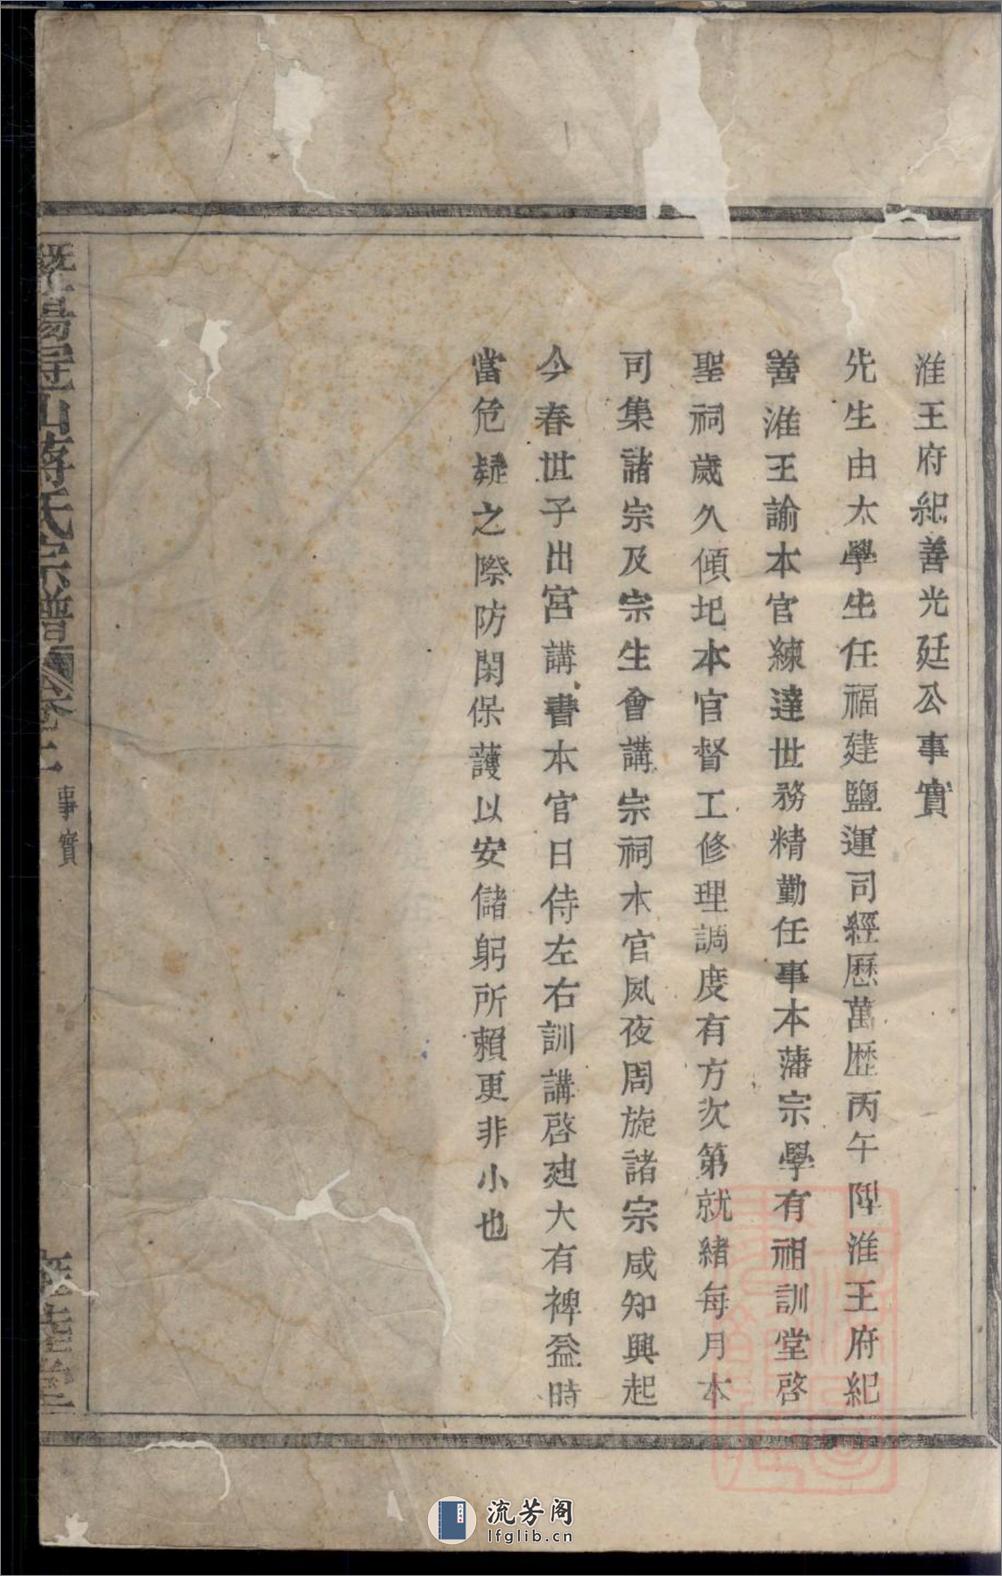 淮王府紀善光廷公事實
先生由太學生任福建鹽運司經歷萬歷丙午陞淮王府紀
善淮王諭本官練達世務精勤任事本藩宗學有祖訓堂啓
聖祠歲久傾圯本官督工修理調度有方次第就緒每月本
司集諸宗及宗生會講宗祠本官夙夜周旋諸宗咸知興起
今春世子出宮講書本官日侍左右訓講啓廸大有裨益時
當危疑之際防閑保護以安儲躬所賴更非小也
暨陽 山蔣氏宗譜 卷
事實
堂
流芳阁
lfglib.cn